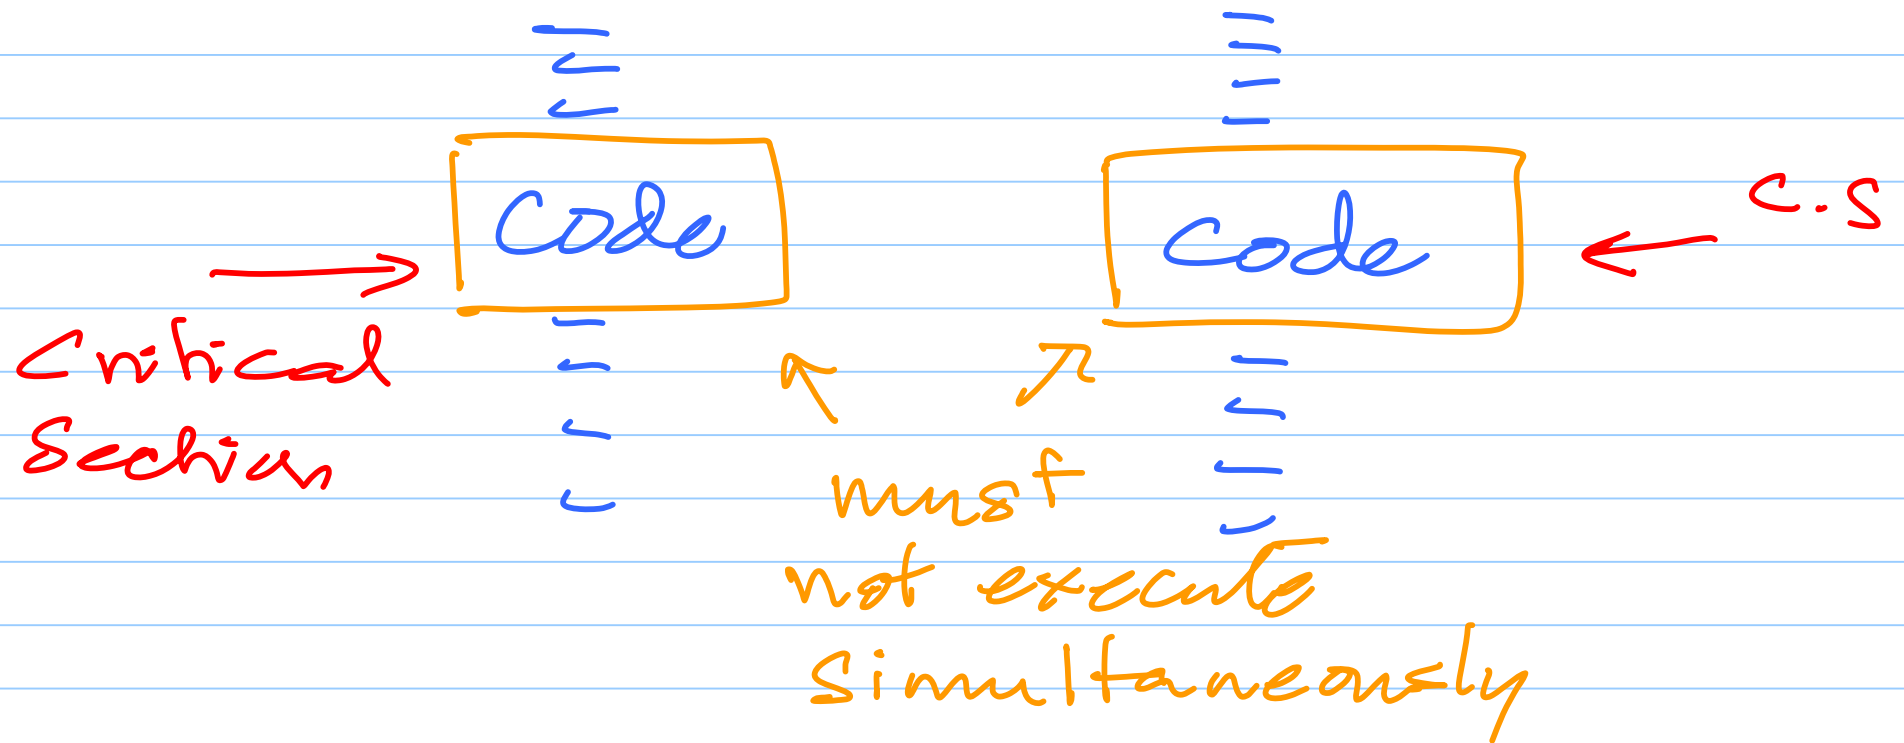 Code
Code
C.S
Critical
Section
must
not execute
simultaneously